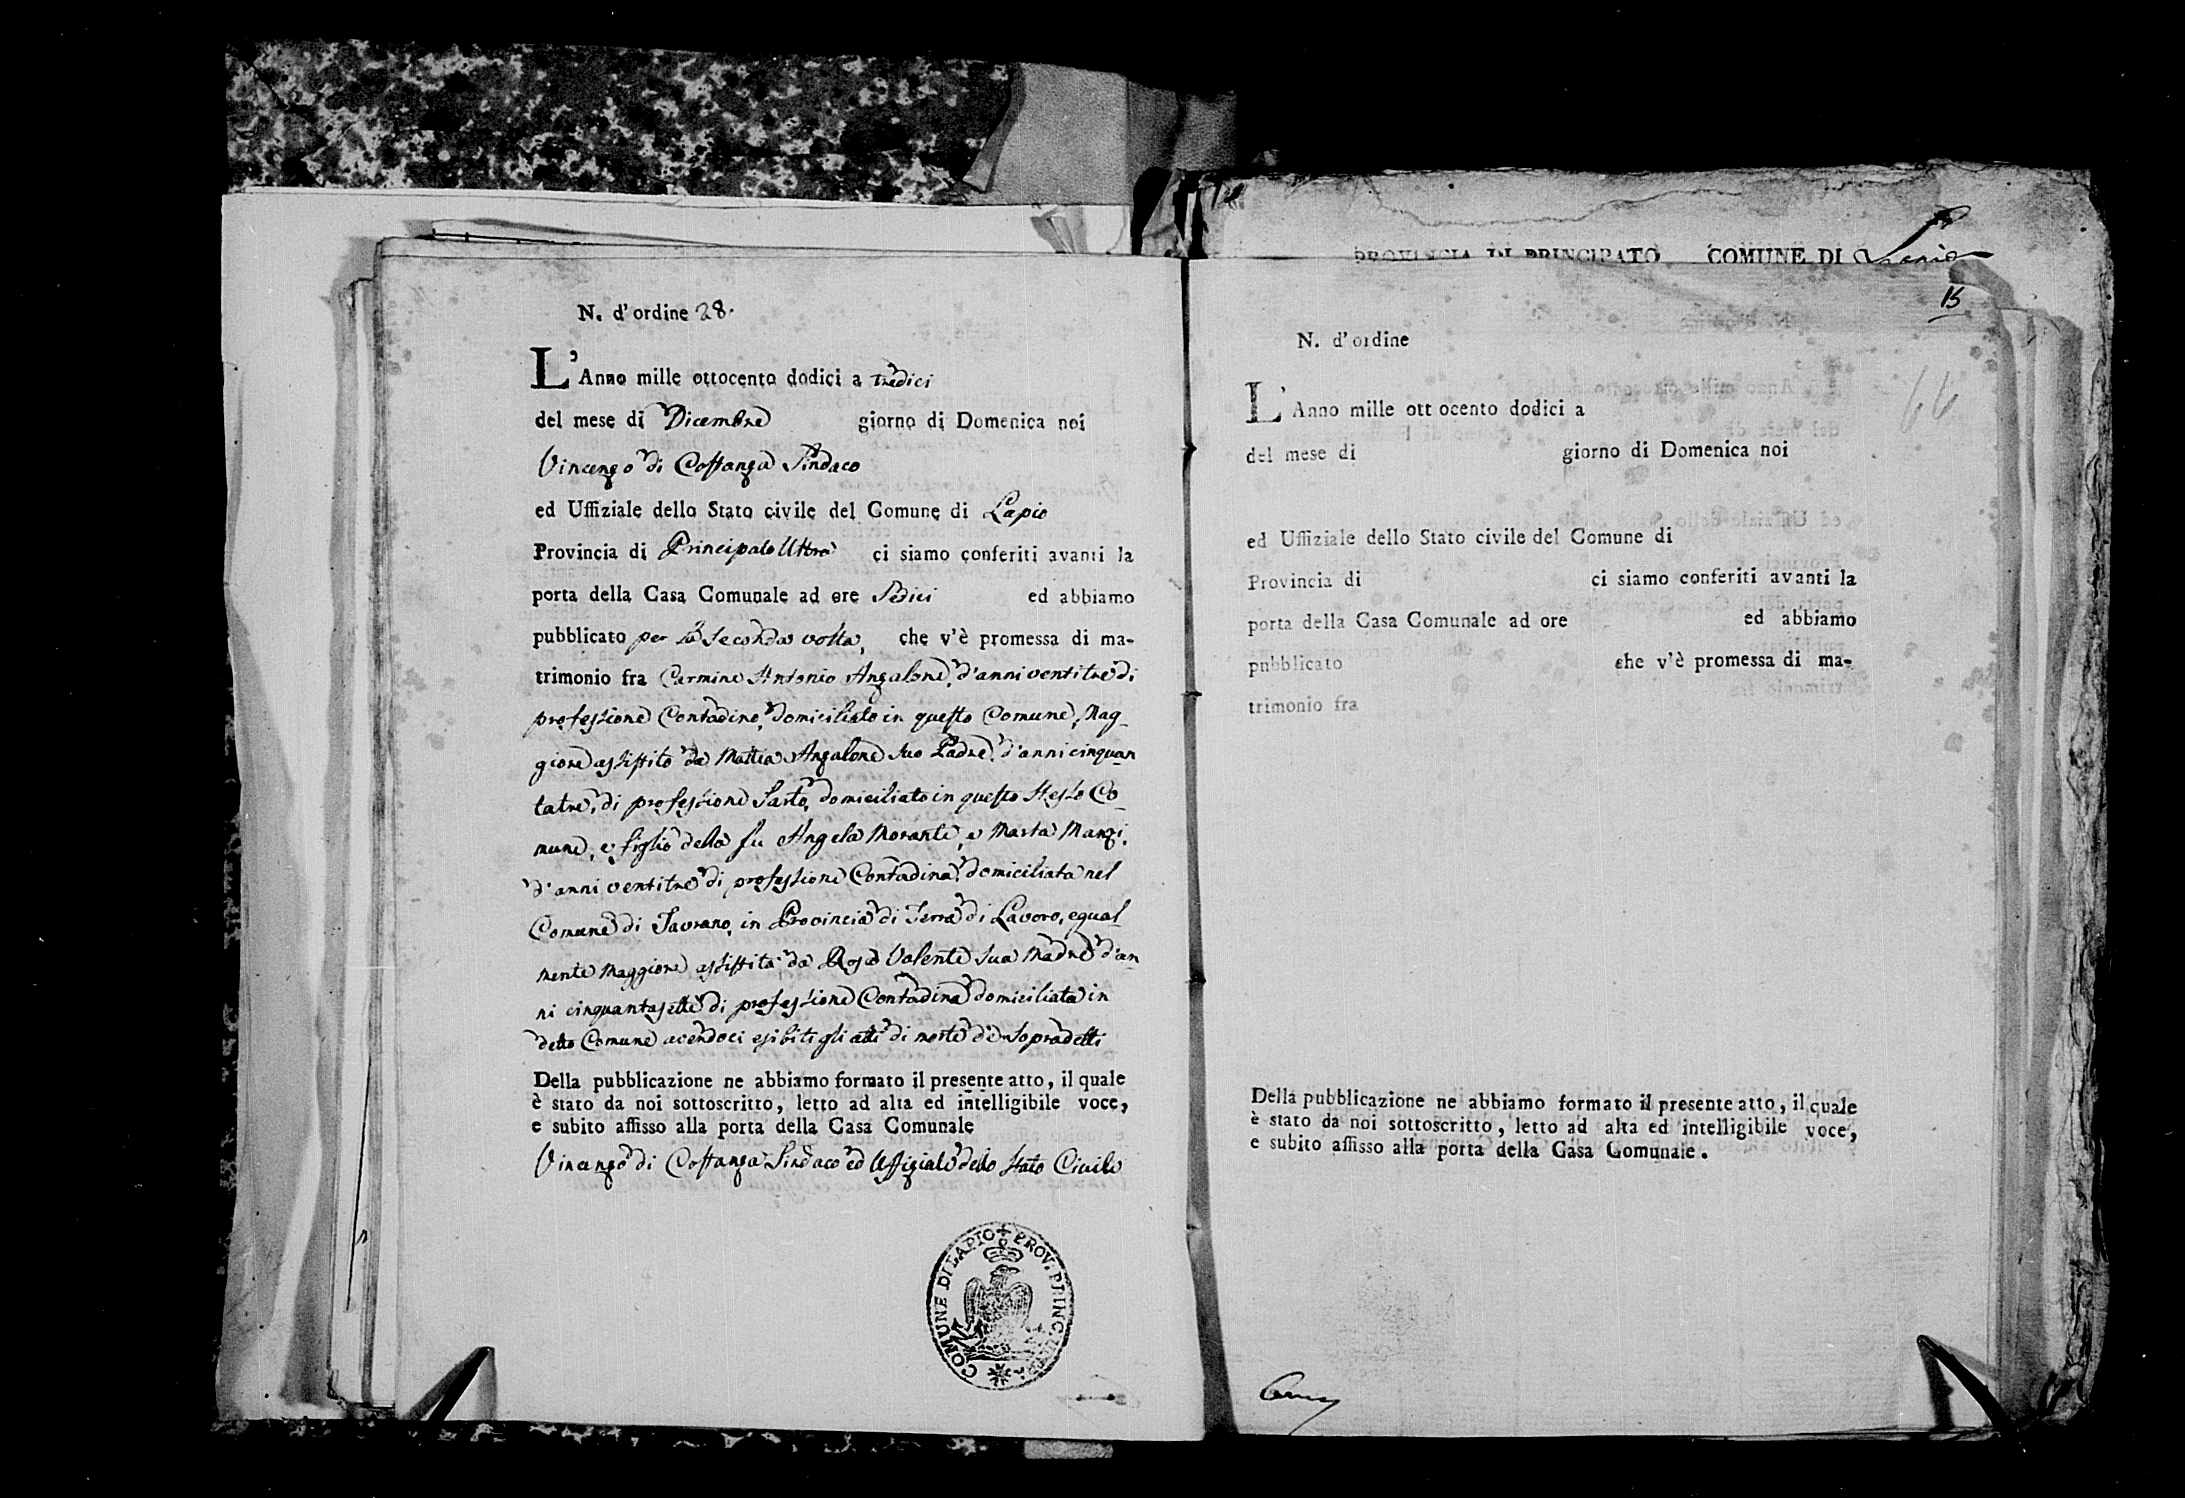 N. d'ordine 28.
L'Anno mille ottocento dodici a tredici
del mese di Dicembre giorno di Domenica noi
Vincenzo di Costanza Sindaco
ed Uffiziale dello Stato civile del Comune di Lapio
Provincia di Principato Ultra ci siamo conferiti avanti la
porta della Casa Comunale ad ore Sedici ed abbiamo
pubblicato per la Seconda volta, che v'è promessa di ma-
trimonio fra Carmine Antonio Anzalone, d'anni ventitre di
professione Contadino, domiciliato in questo Comune, Mag-
giore assistito da Mattia Anzalone suo Padre, d'anni cinquan
tatre, di professione Sarto, domiciliato in questo stesso Co-
mune, e figlio della fu Angela Morante, e Marta Manzi,
d'anni ventitre di professione Contadina, domiciliata nel
Comune di Taurano, in Provincia di Terra di Lavoro, egual-
mente Maggiore assistita da Rosa Valente sua Madre d'an
ni cinquantasette di professione Contadina domiciliata in
detto Comune avendoci esibiti gli atti di morte de Sopradetti
Della pubblicazione ne abbiamo formato il presente atto, il quale
è stato da noi sottoscritto, letto ad alta ed intelligibile voce,
e subito affisso alla porta della Casa Comunale
Vincenzo di Costanza Sindaco ed Uffiziale dello Stato Civile
COMUNE DI LAPIO PROV. PRINC. ULT.
PROVINCIA DI PRINCIPATO COMUNE DI Lapio
15
66
N. d'ordine
L'Anno mille ott ocento dodici a
del mese di giorno di Domenica noi
ed Uffiziale dello Stato civile del Comune di
Provincia di ci siamo conferiti avanti la
porta della Casa Comunale ad ore ed abbiamo
pubblicato che v'è promessa di ma-
trimonio fra
Della pubblicazione ne abbiamo formato il presente atto, il quale
è stato da noi sottoscritto, letto ad alta ed intelligibile voce,
e subito affisso alla porta della Casa Comunale.